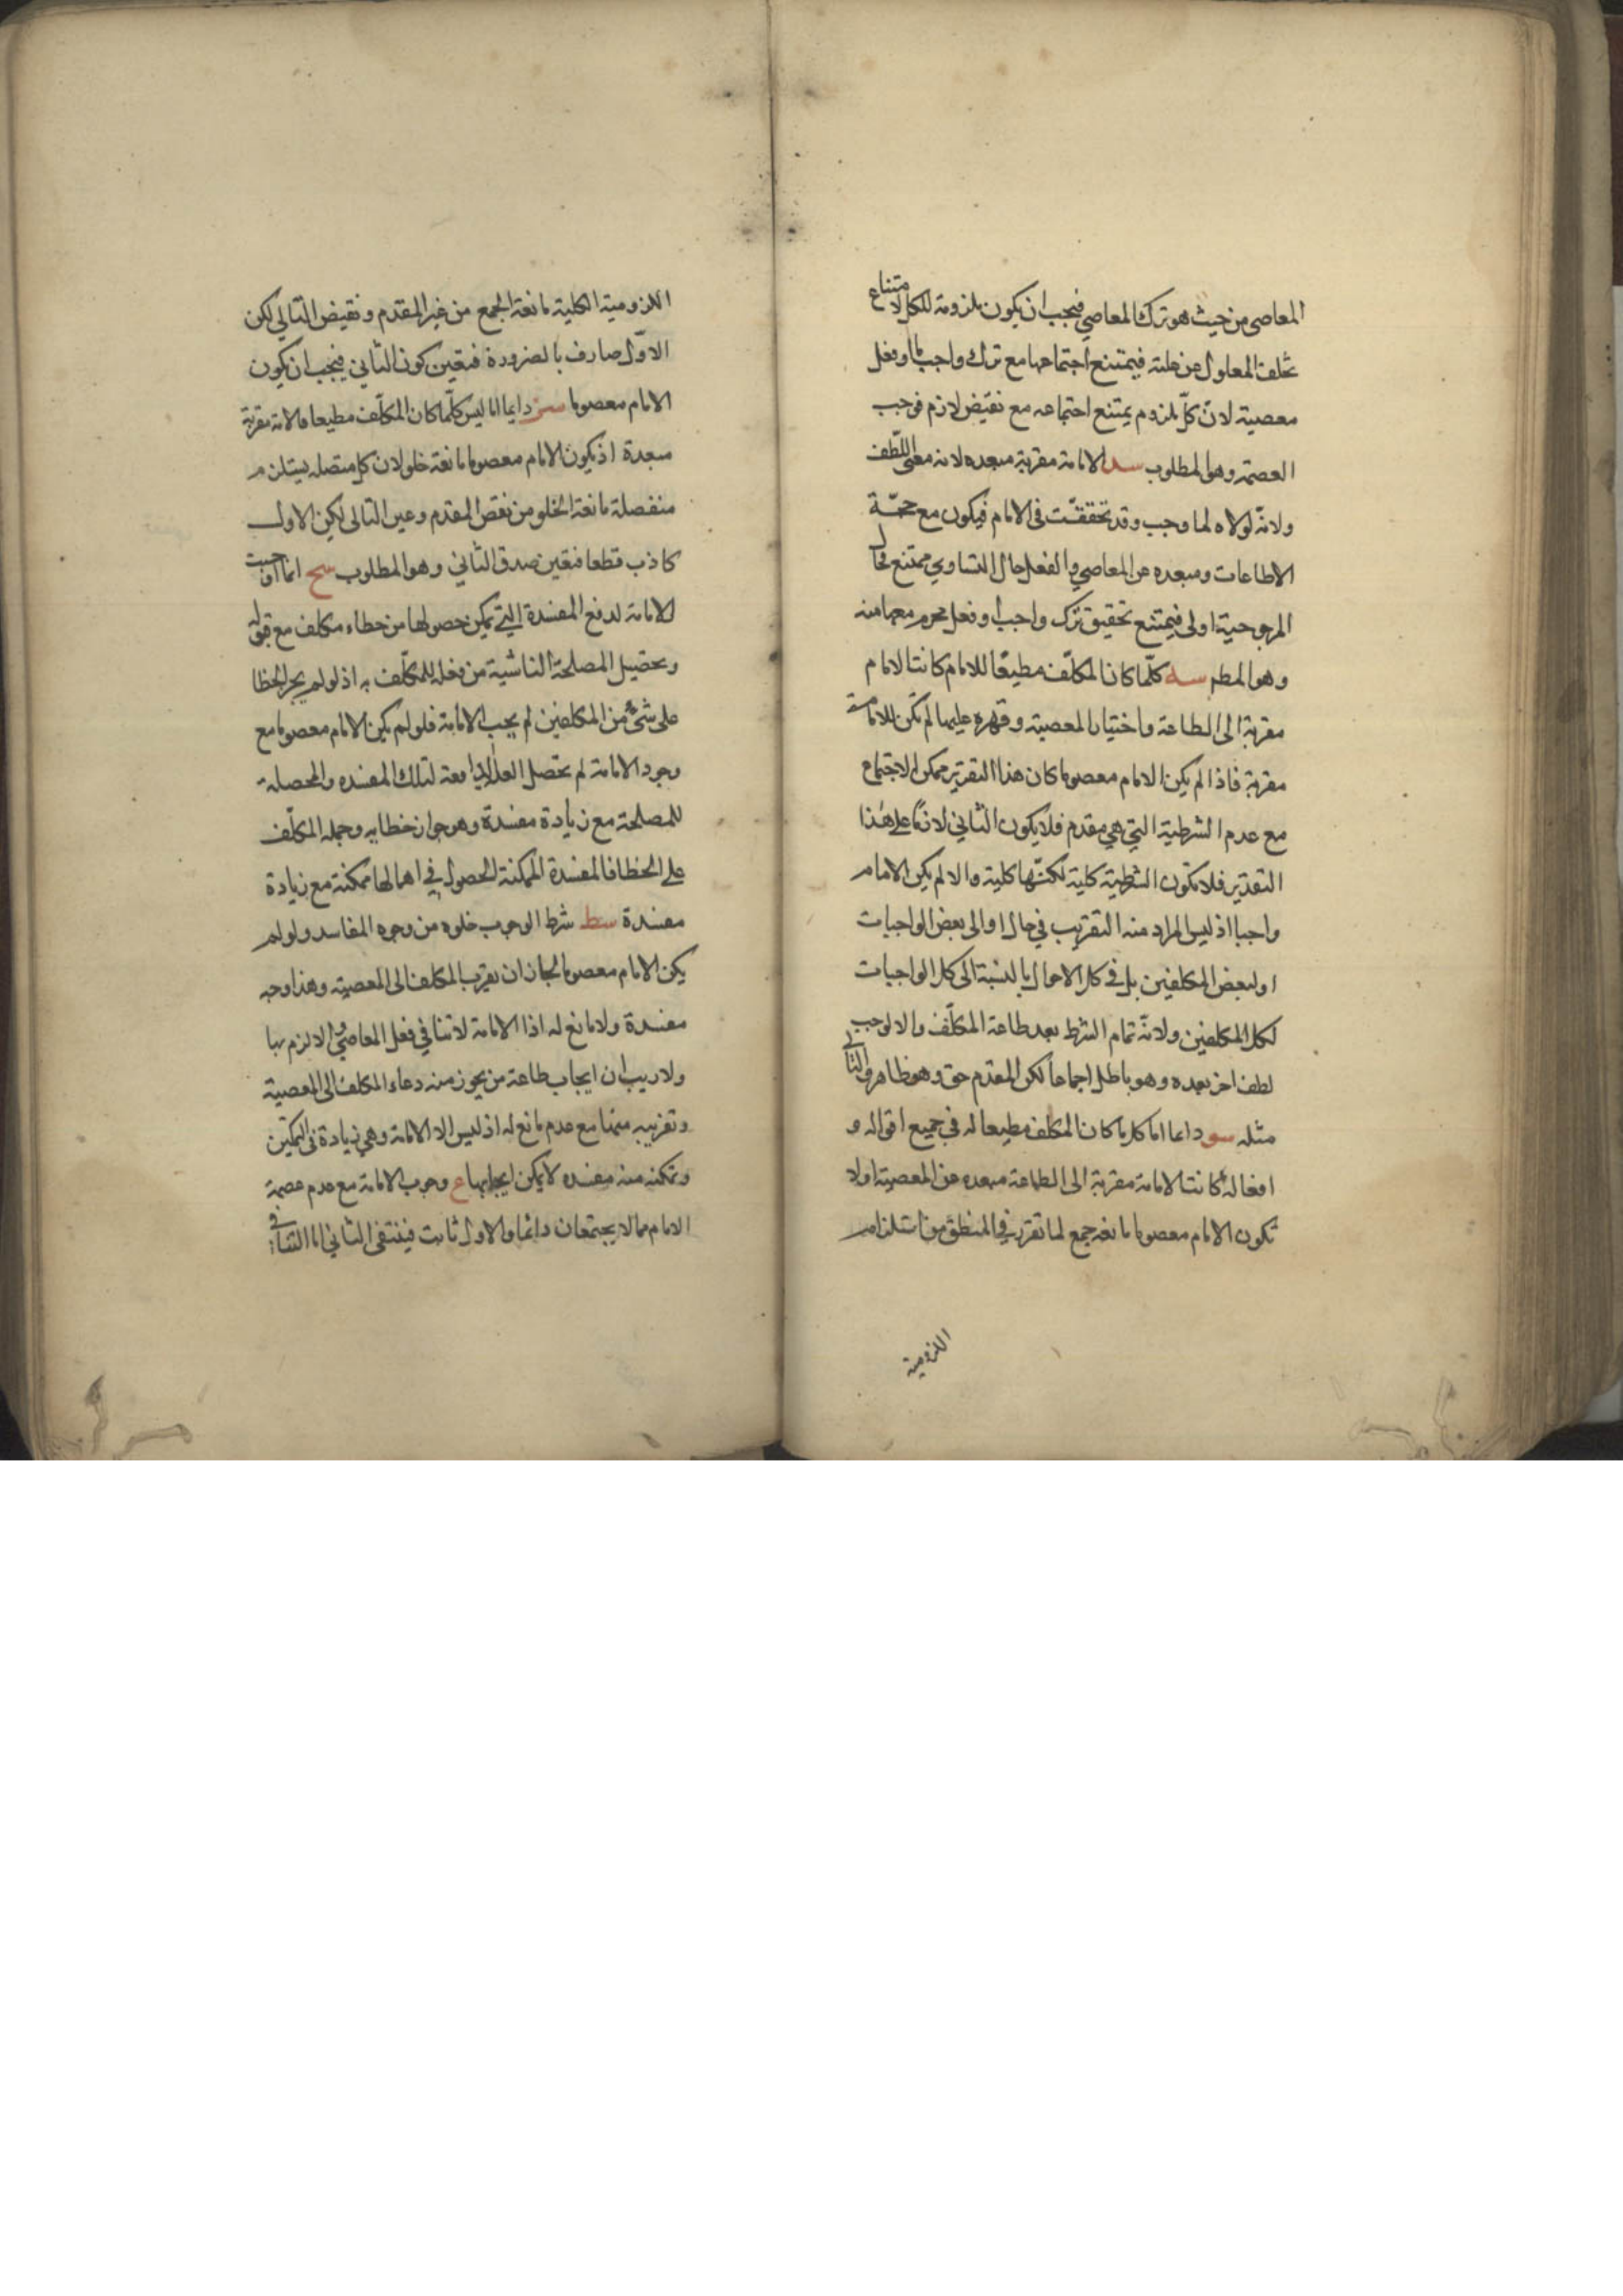 المعاصى من حيث هو ترك المعاصي فيجب ان يكون ملزومة للكل لامتناع
تخلف المعلول عن علته فيمتنع اجتماعها مع ترك واجب ما او فعل
معصية لانّ كلّ ملزوم يمتنع اجتماعه مع نقيض لازم فوجب
العصمة وهو المطلوب سد الامامة مقربة مبعده لانه معنى اللّطف
ولانّه لولاه لما وجب وقد تحققت فى الامام فيكون مع
الاطاعات ومبعده عن المعاصي والفعل حال التساوي ممتنع فحال
المرجوحية اولى فيمتنع تحقيق ترك واجب او فعل محرم معها منه
وهو المطم سه كلّما كان المكلّف مطيعًا للامام كانت الامام
مقربة الى الطاعة واختيار المعصية وقهره عليها لم تكن الامامة
مقربة فاذا لم يكن الامام معصوما كان هذا التقرير ممكن الاجتماع
مع عدم الشرطية التي هي مقدم فلا يكون الثاني لازمًا على هذا
التقدير فلا تكون الشرطية كلية لكنّها كلية والا لم يكن الامام
واجبا اذ ليس المراد منه التقريب في حال او الى بعض الواجبات
او لبعض المكلفين بل فى كل الاحوال بالنسبة الى كل الواجبات
لكل المكلفين ولانّه تمام الشرط بعد طاعة المكلّف والا لوجب
لطف اخر بعده وهو باطل اجماعا لكن المقدم حق وهو ظاهر والتالي
مثله سو داعا اما كل ما كان المكلف مطيعا له فى جميع اقواله و
افعاله كانت الامامة مقربة الى الطاعة مبعده عن المعصية اولا
تكون الامام معصوما مانعه جمع لما تقرر في المنطق من استلزام
اللزومية
اللزومية الكلية مانعة الجمع من غير المقدم ونقيض التالي لكن
الاوّل صارف بالضرورة فتعين كون الثاني فيجب ان يكون
الامام معصوما سز دايما اما ليس كلّما كان المكلّف مطيعا فالامة مقربة
مبعدة اذ يكون الامام معصوما مانعة خلو لان كل متصله يستلزم
منفصلة مانعة الخلو من نقص المقدم وعين التالى لكن الاول
كاذب قطعا فتعين صدق الثاني وهو المطلوب سح انما اوجبت
الامامة لدفع المفسدة التي يمكن حصولها من خطاء مكلف مع قوله
وتحصيل المصلحة الناشية من فعله للمكلّف به اذ لو لم يجز الخطا
على شئ من المكلفين لم يجب الامامة فلو لم يكن الامام معصوما مع
وجود الامامة لم تحصل العلة الدافعة لتلك المفسده والمحصلة
للمصلحة مع زيادة مفسدة وهو جواز خطايه وحمله المكلّف
على الخطا فالمفسدة الممكنة الحصول في اهمالها ممكنة مع زيادة
مفسدة سط شرط الوجوب خلوه من وجوه المفاسد ولو لم
يكن الامام معصوما لجاز ان يقرب المكلف الى المعصية وهذا وجه
مفسدة ولا مانع له اذا الامامة لا تنافي فعل المعاصي والا لزم بها
ولا ريب ان ايجاب طاعة من يجوز منه دعاء المكلف الى المعصية
وتقريبه منها مع عدم مانع له اذ ليس الا الامامة وهي زيادة فى التمكين
وتمكنه منه مفسده لا يمكن ايجابها ع وجوب الامامة مع عدم عصمة
الامام مما لا يجتمعان دائما والاول ثابت فينتفى الثاني اما التنافى